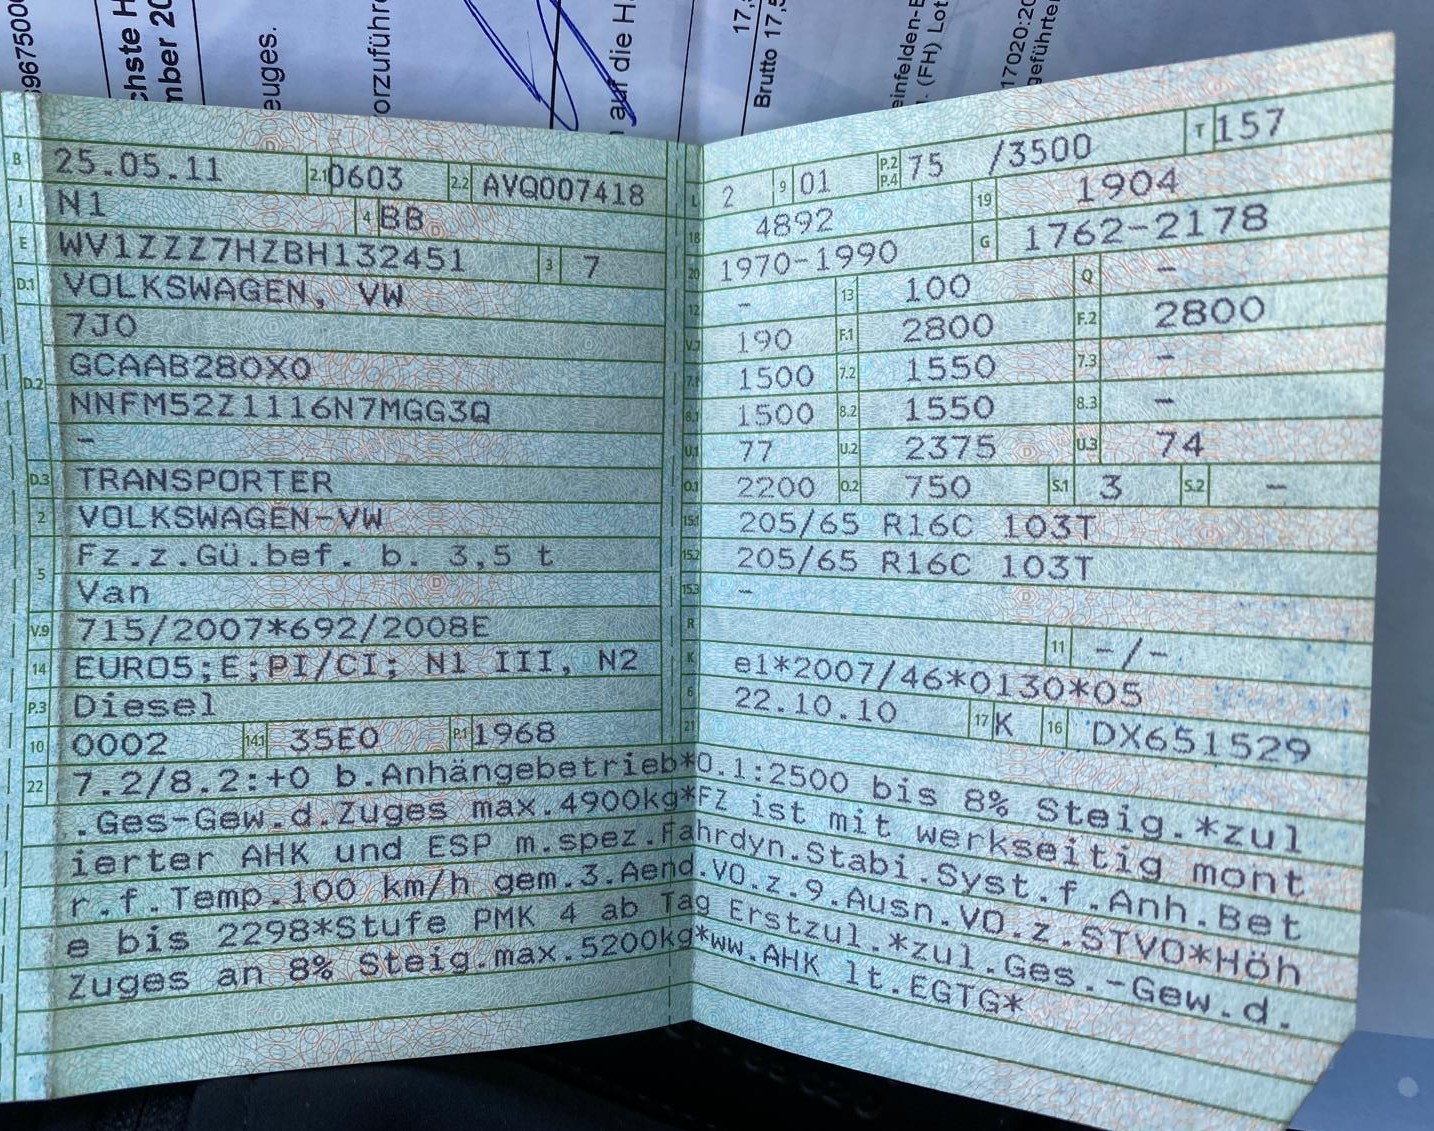 967500
chste H
mber 20
euges.
orzuführe
auf die H
17,
Brutto 17,5
einfelden-E
. (FH) Lot
17020:20
geführte
B 25.05.11 2.1 0603 2.2 AVQ007418
J N1 4 BB
E WV1ZZZ7HZBH132451 3 7
D.1 VOLKSWAGEN, VW
7J0
D.2 GCAAB280X0
NNFM52Z1116N7MGG3Q
-
D.3 TRANSPORTER
2 VOLKSWAGEN-VW
5 Fz.z.Gü.bef. b. 3,5 t
Van
V.9 715/2007*692/2008E
14 EURO5;E;PI/CI; N1 III, N2
P.3 Diesel
10 0002 14.1 35E0 P.1 1968
L 2 9 01 P.2 P.4 75 /3500 T 157
18 4892 19 1904
20 1970-1990 G 1762-2178
12 - 13 100 Q -
V.7 190 F.1 2800 F.2 2800
7.1 1500 7.2 1550 7.3 -
8.1 1500 8.2 1550 8.3 -
U.1 77 U.2 2375 U.3 74
O.1 2200 O.2 750 S.1 3 S.2 -
15.1 205/65 R16C 103T
15.2 205/65 R16C 103T
15.3 -
R 11 -/-
K e1*2007/46*0130*05
6 22.10.10 17 K 16 DX651529
21
22 7.2/8.2:+0 b.Anhängebetrieb*0.1:2500 bis 8% Steig.*zul
.Ges-Gew.d.Zuges max.4900kg*FZ ist mit werkseitig mont
ierter AHK und ESP m.spez.Fahrdyn.Stabi.Syst.f.Anh.Bet
r.f.Temp.100 km/h gem.3.Aend.VO.z.9.Ausn.VO.z.STVO*Höh
e bis 2298*Stufe PMK 4 ab Tag Erstzul.*zul.Ges.-Gew.d.
Zuges an 8% Steig.max.5200kg*ww.AHK lt.EGTG*